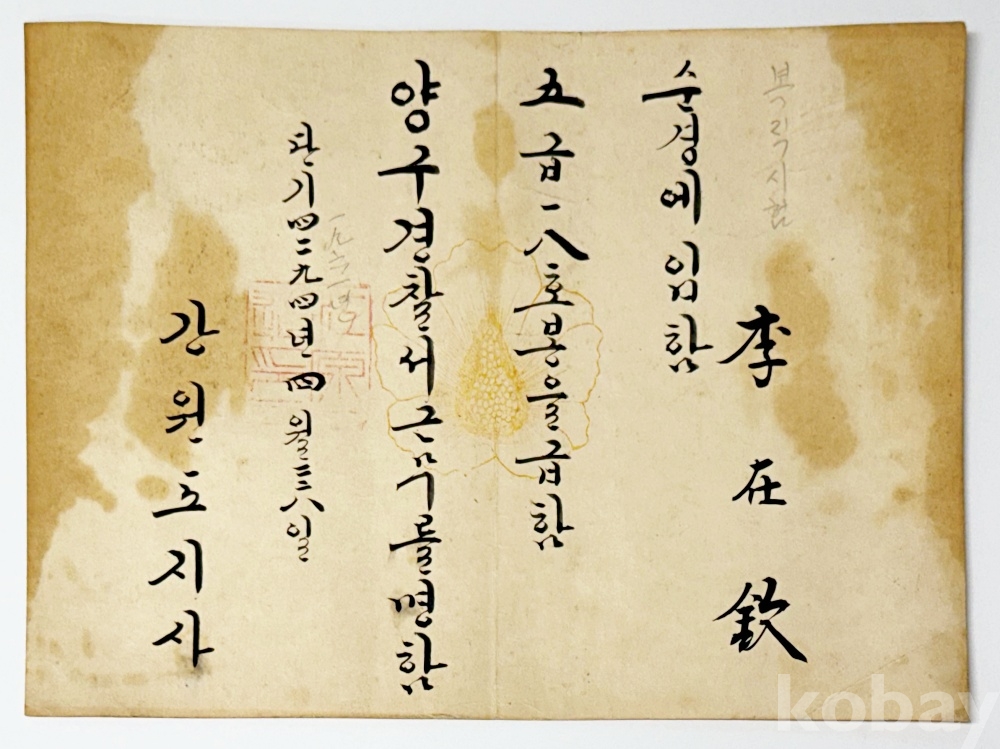 복직시험
李在欽
순경에임함
五급一八호봉을급함
양구경찰서근무를명함
一九六一년
단기四二九四년四월二八일
강원도지사
kobay